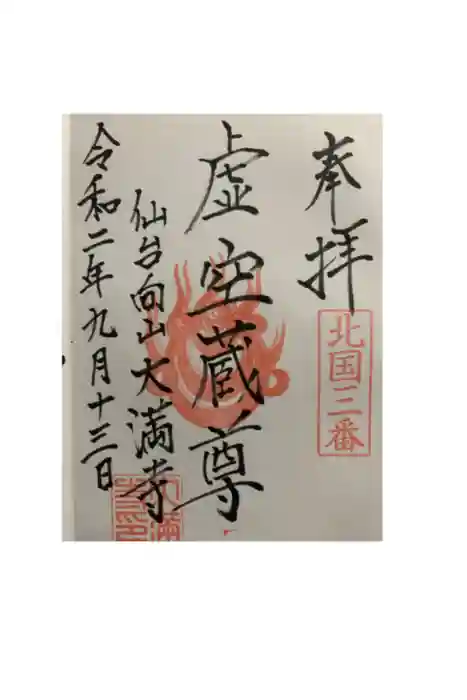 奉拝
北国三番
虚空蔵尊
仙台向山大満寺
令和二年九月十三日